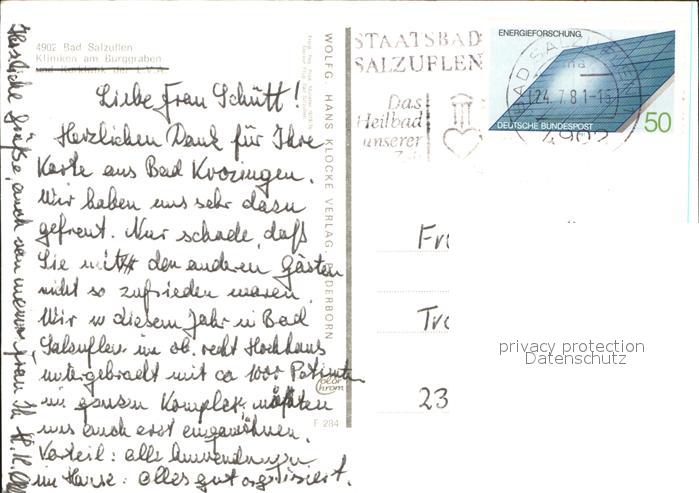 4902 Bad Salzuflen
Kliniken am Burggraben
und Kurklinik der L.V.A.
Liebe Frau Schütt!
Herzlichen Dank für Ihre
Karte aus Bad Krozingen.
Wir haben uns sehr dazu
gefreut. Nur schade, daß
Sie mit den anderen Gästen
nicht so zufrieden waren.
Wir in diesem Jahr in Bad
Salzuflen im ob. recht Hochhaus
untergebracht mit ca 1000 Patienten
im ganzen Komplex, mußten
uns auch erst eingewöhnen.
Vorteil: alle Anwendungen
im Hause: alles gut organisiert.
Herzliche Grüße, auch von meiner Frau Ihr H. K.
WOLFG. HANS KLOCKE VERLAG, PADERBORN
color
chrom
F 284
STAATSBAD
SALZUFLEN
Das
Heilbad
unserer
BAD SALZUFLEN
24.7.81-15
4902
ENERGIEFORSCHUNG
DEUTSCHE BUNDESPOST
50
Fr
Tr
23
privacy protection
Datenschutz